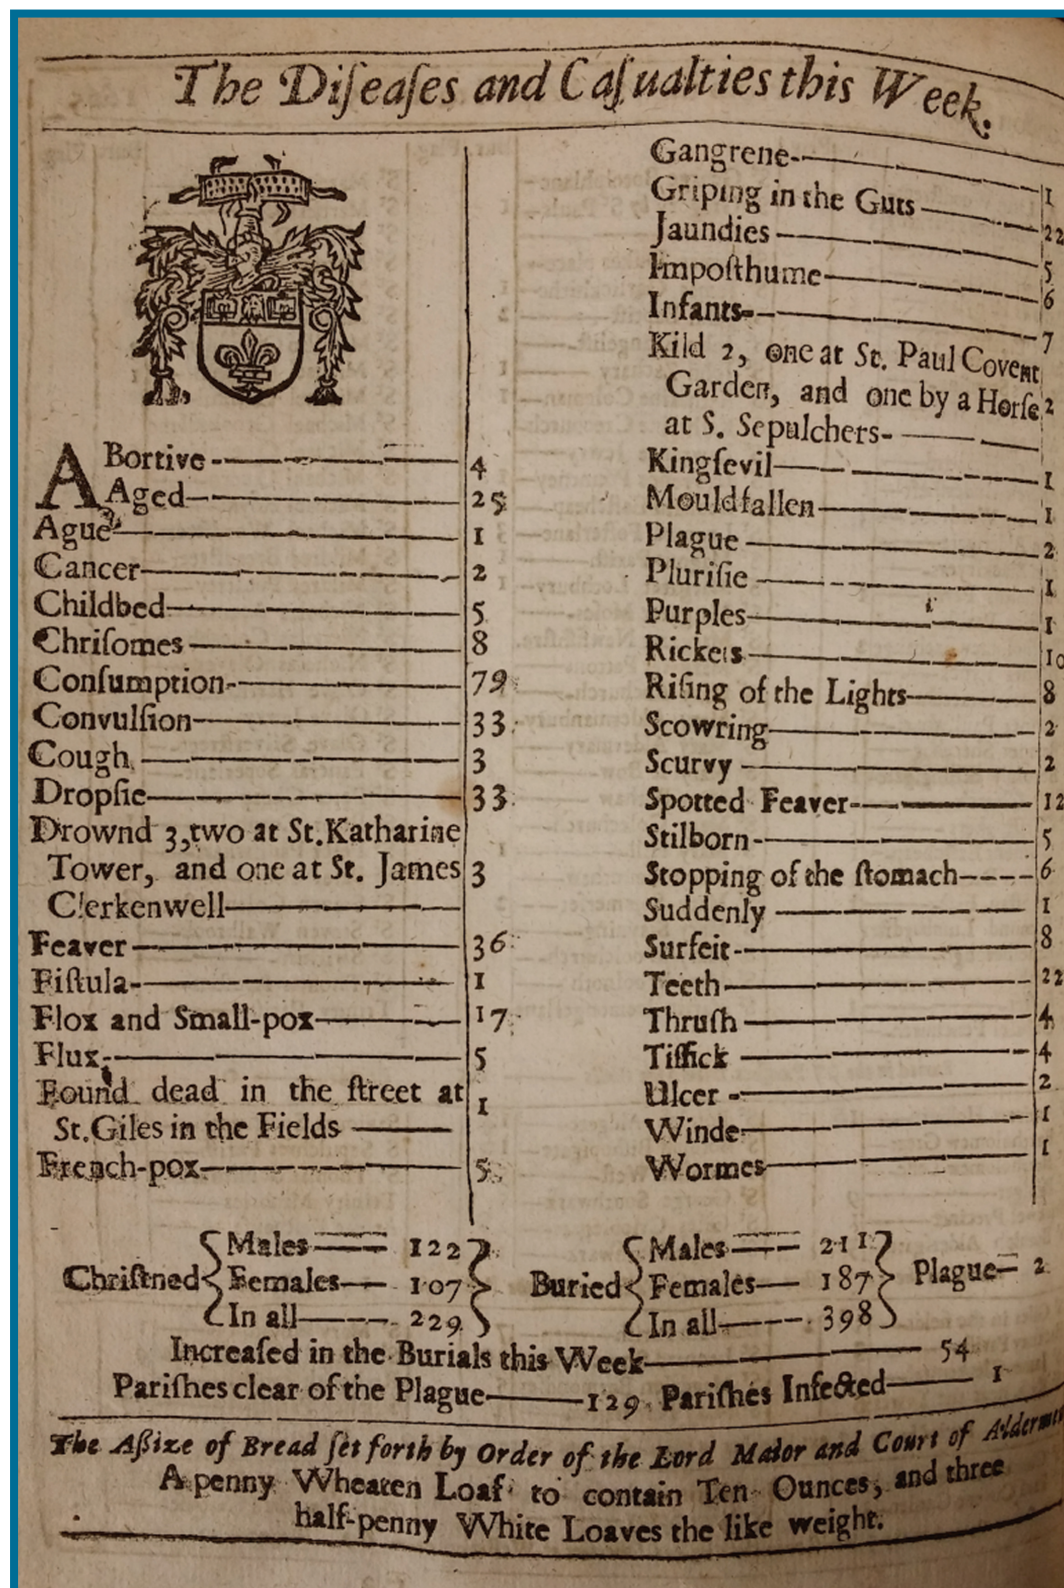 The Diſeaſes and Caſualties this Week.
ABortive 4
Aged 25
Ague 1
Cancer 2
Childbed 5
Chriſomes 8
Conſumption 79
Convulſion 33
Cough 3
Dropſie 33
Drownd 3, two at St. Katharine
Tower, and one at St. James 3
Clerkenwell
Feaver 36
Fiſtula 1
Flox and Small-pox 17
Flux 5
Found dead in the ſtreet at 1
St. Giles in the Fields
French-pox 5
Gangrene 1
Griping in the Guts 22
Jaundies 5
Impoſthume 6
Infants 7
Kild 2, one at St. Paul Covent
Garden, and one by a Horſe 2
at S. Sepulchers
Kingſevil 1
Mouldfallen 1
Plague 2
Pluriſie 1
Purples 1
Rickets 10
Riſing of the Lights 8
Scowring 2
Scurvy 2
Spotted Feaver 12
Stilborn 5
Stopping of the ſtomach 6
Suddenly 1
Surfeit 8
Teeth 22
Thruſh 4
Tiſſick 4
Ulcer 2
Winde 1
Wormes 1
Males 122
Chriſtned Females 107
In all 229
Males 211
Buried Females 187 Plague 2
In all 398
Increaſed in the Burials this Week 54
Pariſhes clear of the Plague 129 Pariſhes Infected 1
The Aſsize of Bread ſet forth by Order of the Lord Maior and Court of Aldermen
A penny Wheaten Loaf to contain Ten Ounces, and three
half-penny White Loaves the like weight.